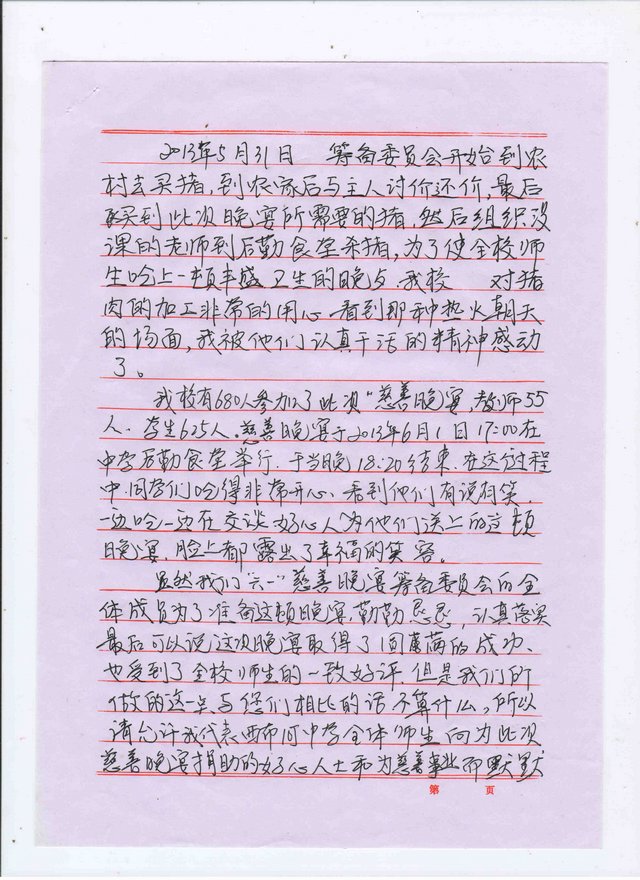 2013年5月31日 筹备委员会开始到农
村去买猪,到农家后与主人讨价还价,最后
买到此次晚宴所需要的猪,然后组织没
课的老师到后勤食堂杀猪,为了使全校师
生吃上一顿丰盛卫生的晚 我校 对猪
肉的加工非常的用心.看到那种热火朝天
的场面,我被他们认真干活的精神感动
了。
我校有680人参加了此次“慈善晚宴,教师55
人.学生625人.慈善晚宴于2013年6月1日17:00在
中学后勤食堂举行.于当晚18:20结束.在这过程
中.同学们吃得非常开心.看到他们有说有笑.
一边吃一边在交谈.好心人为他们送上的这顿
晚宴,脸上都露出了幸福的笑容。
虽然我们“六一”慈善晚宴筹备委员会的全
体成员为了准备这顿晚宴.勤勤恳恳,认真落实
最后可以说这次晚宴取得了圆满的成功、
也受到了全校师生的一致好评.但是我们所
做的这一点与您们相比的话不算什么,所以
请允许我代表西布河中学全体师生向为此次
慈善晚宴捐助的好心人士和为慈善事业而默默
第 页